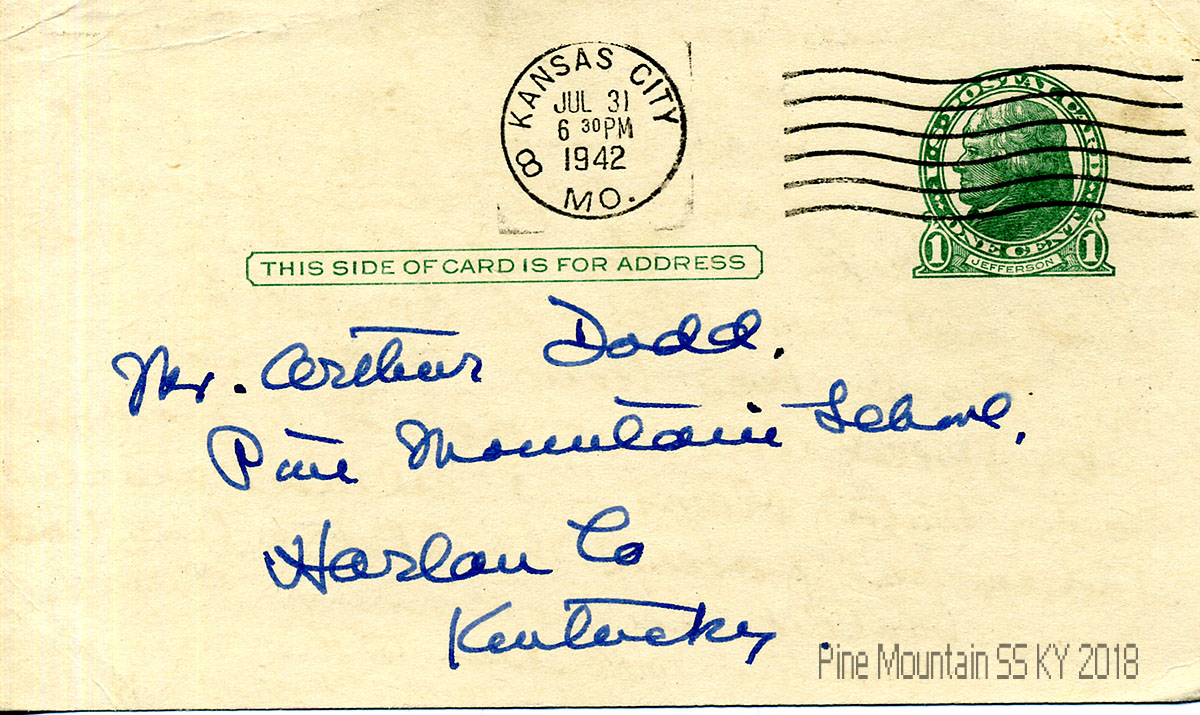 KANSAS CITY
JUL 31
6 30 PM
1942
8 MO.
U.S. POSTAL CARD
ONE CENT
1 JEFFERSON 1
THIS SIDE OF CARD IS FOR ADDRESS
Mr. Arthur Dodd.
Pine Mountain School,
Harlan Co
Kentucky.
Pine Mountain SS KY 2018